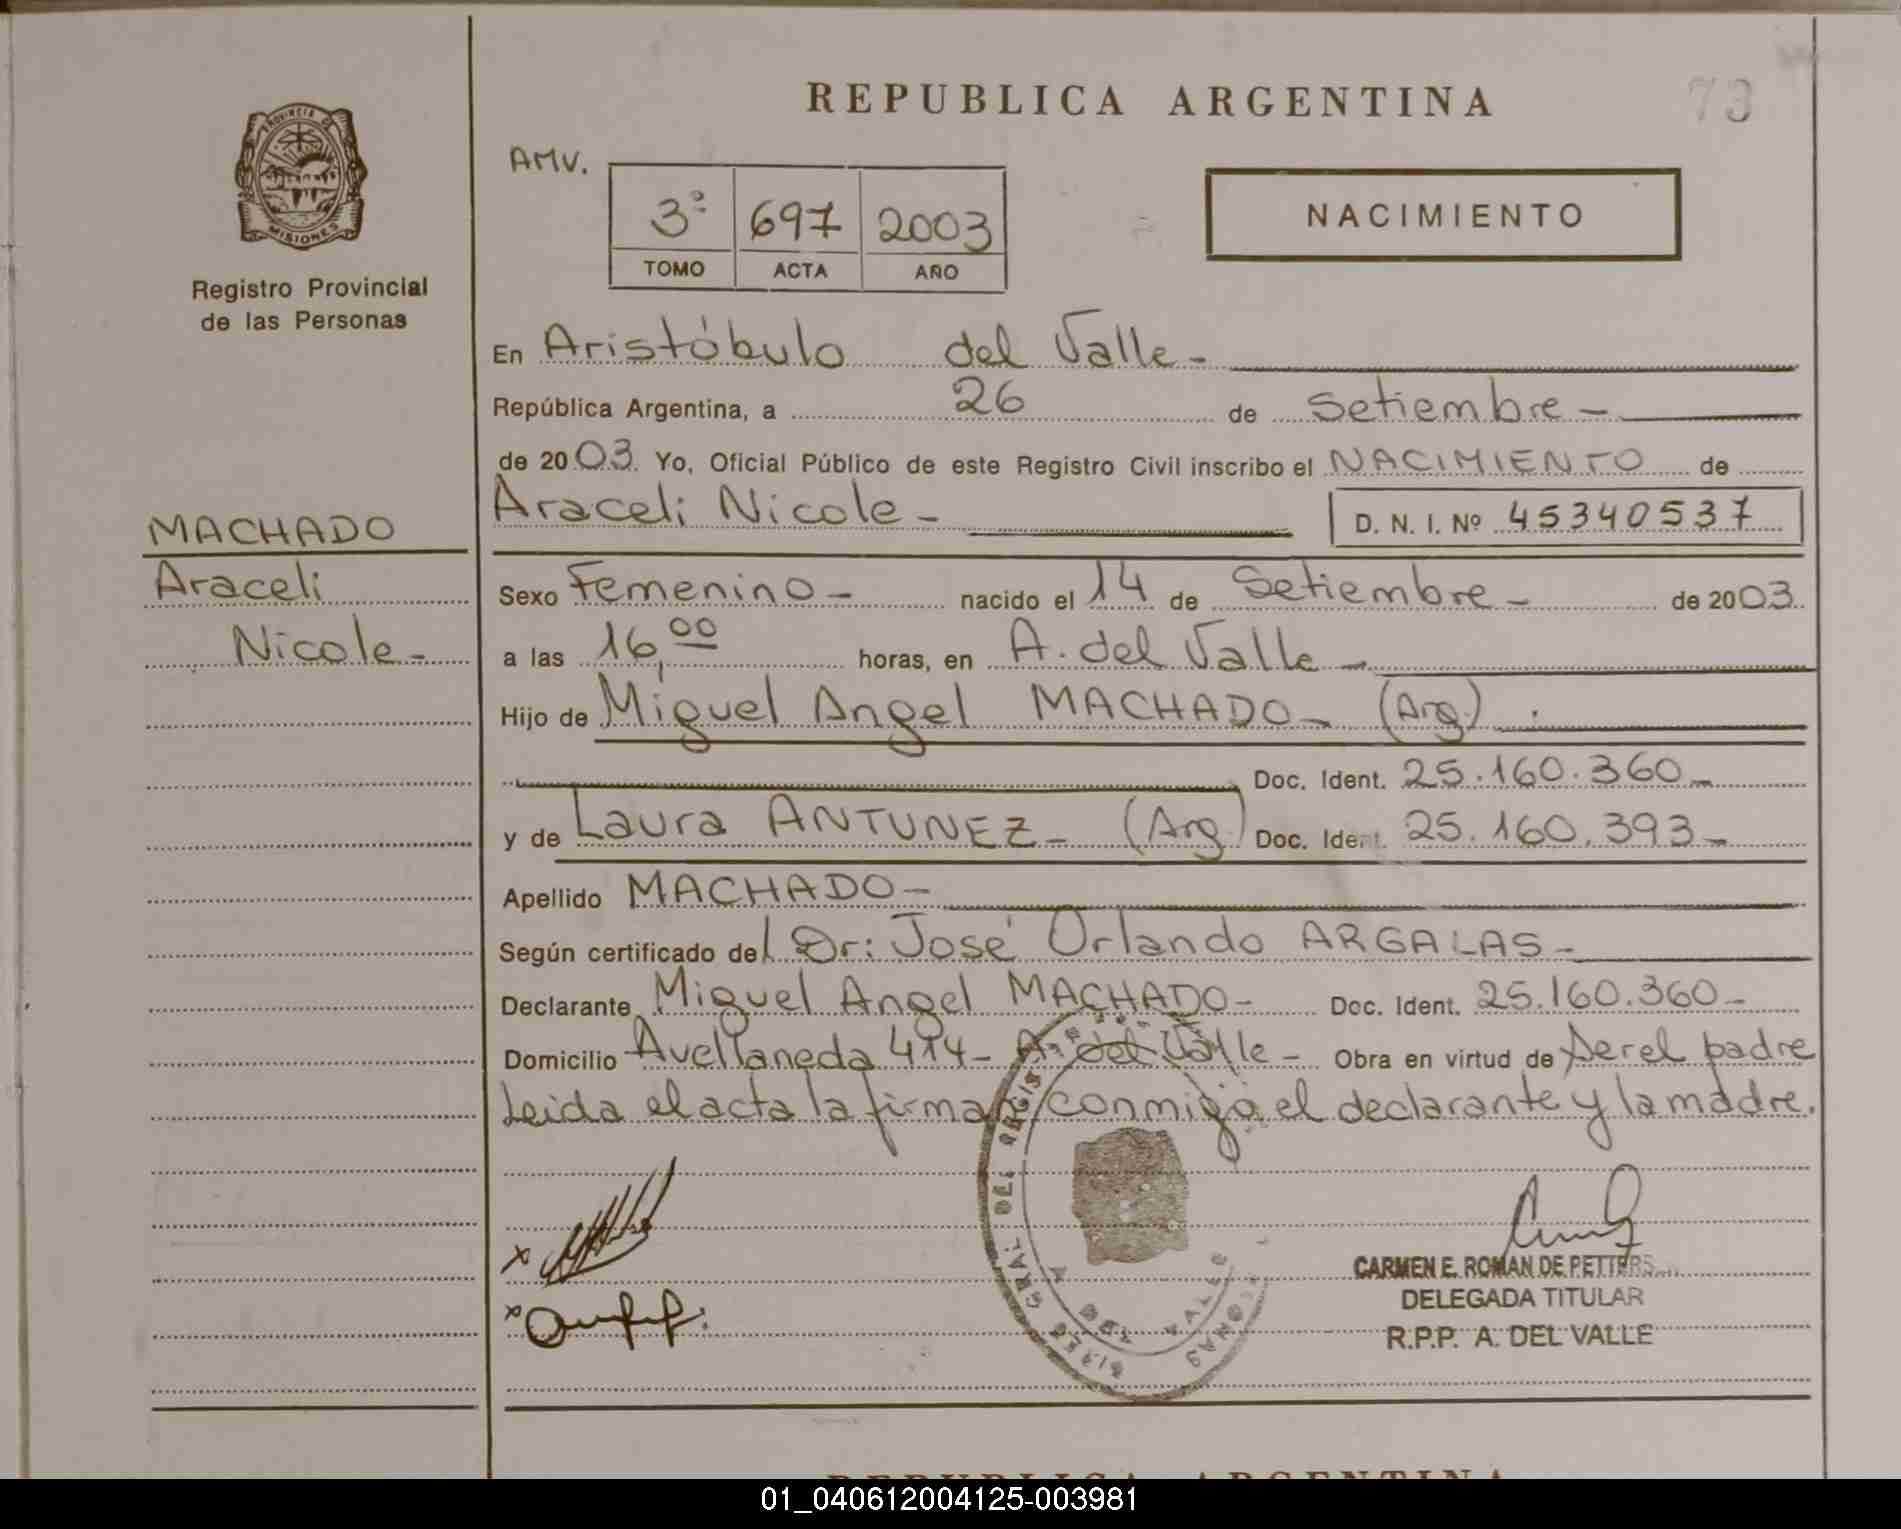 REPUBLICA ARGENTINA
73
PROVINCIA DE
MISIONES
Registro Provincial
de las Personas
AMV.
3º 697 2003
TOMO ACTA AÑO
NACIMIENTO
En Aristóbulo del Valle -
República Argentina, a 26 de Setiembre -
de 2003. Yo, Oficial Público de este Registro Civil inscribo el NACIMIENTO de
Araceli Nicole - D. N. I. Nº 45340537
MACHADO
Araceli
Nicole -
Sexo Femenino - nacido el 14 de Setiembre - de 2003.
a las 16,00 horas, en A. del Valle -
Hijo de Miguel Angel MACHADO - (Arg.)
Doc. Ident. 25.160.360 -
y de Laura ANTUNEZ - (Arg.) Doc. Ident. 25.160.393 -
Apellido MACHADO -
Según certificado del Dr: José Orlando ARGALAS -
Declarante Miguel Angel MACHADO - Doc. Ident. 25.160.360 -
Domicilio Avellaneda 414 - A. del Valle - Obra en virtud de Ser el padre
Leida el acta la firman conmigo el declarante y la madre.
GRAL. DEL REGIS
VALLE
x
x
CARMEN E. ROMAN DE PETTERS
DELEGADA TITULAR
R.P.P. A. DEL VALLE
REPUBLICA ARGENTINA
01_040612004125-003981